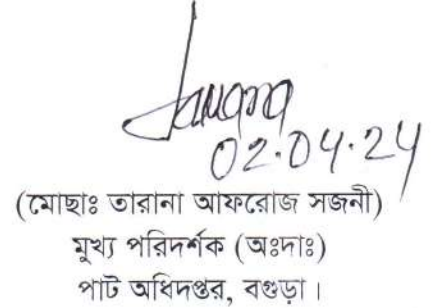 02.04.24
(মোছাঃ তারানা আফরোজ সজনী)
মুখ্য পরিদর্শক (অঃদাঃ)
পাট অধিদপ্তর, বগুড়া।